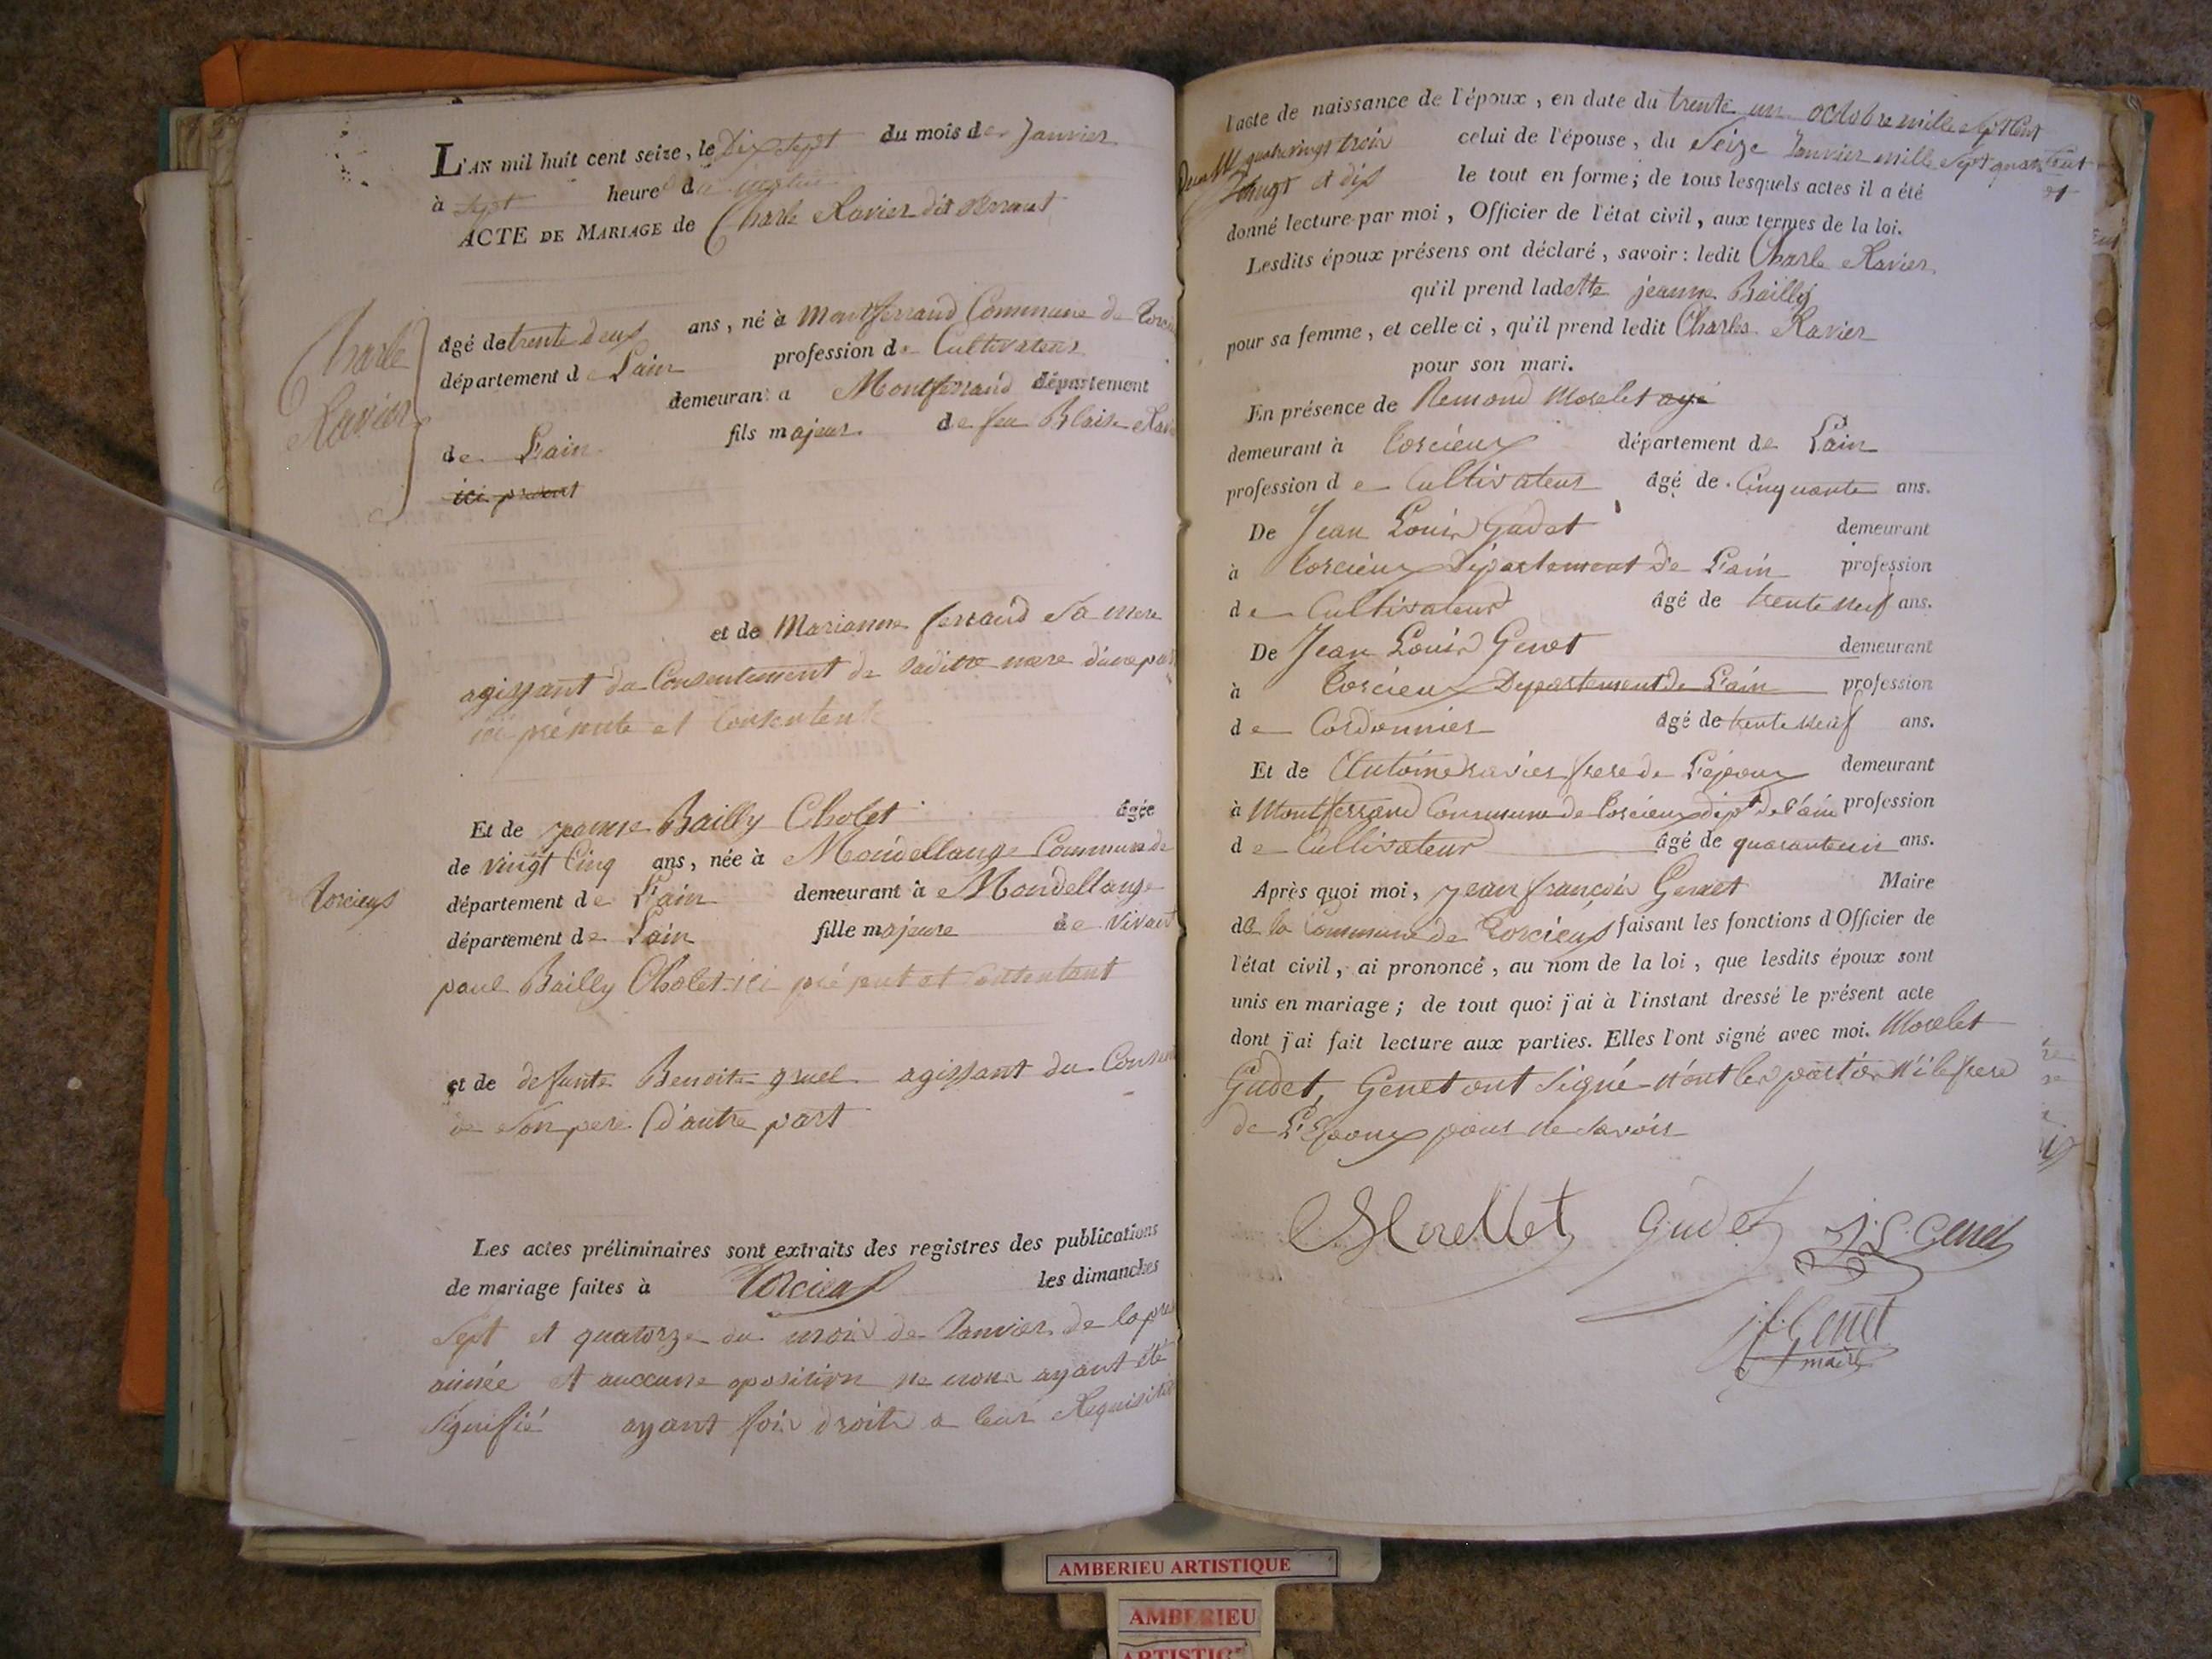 L'AN mil huit cent seize, le Dix Sept du mois de Janvier
à Sept heure du matin
ACTE DE MARIAGE de Charle Ravier dit
Charle
Ravier
âgé de trente deux ans, né à Montferrand Commune de Torcieu
département de L'ain profession de Cultivateur
demeurant a Montferrand département
de L'ain fils majeur de feu Blaise Ravier
ici présent
et de Marianne ferrand Sa mere
agissant du Consentement de saditte mere d'une part
ici présente et Consentente
Et de jeanne Bailly Cholet âgée
de vingt Cinq ans, née à Mondellange Commune de
Torcieux
département de L'ain demeurant à Mondellange
département de Lain fille majeure de vivant
paul Bailly Cholet ici présent et Consentant
et de defunte Benoite gruel agissant du
de Son pere d'autre part
Les actes préliminaires sont extraits des registres des publications
de mariage faites à Torcieux les dimanches
Sept et quatorze du mois de Janvier de la
année et auccune oposition ne nous ayant été
Signiffié ayant droit a leur Requisition
l'acte de naissance de l'époux, en date du trente un octobre mille Sept Cent
quatrevingt trois celui de l'épouse, du Seize Janvier mille Sept Cent quatre
Vingt et dix le tout en forme; de tous lesquels actes il a été
donné lecture par moi, Officier de l'état civil, aux termes de la loi.
Lesdits époux présens ont déclaré, savoir: ledit Charle Ravier
qu'il prend ladette jeanne Bailly
pour sa femme, et celle ci, qu'il prend ledit Charles Ravier
pour son mari.
En présence de Remond Morelet agé
demeurant à Torcieux département de L'ain
profession de Cultivateur âgé de Cinquante ans.
De Jean Louis Gudet demeurant
à Torcieux Département de L'ain profession
de Cultivateur âgé de trente neuf ans.
De Jean Louis Genet demeurant
à Torcieux Departement de L'ain profession
de Cordonnier âgé de trente neuf ans.
Et de Antoine ravier frere de L'époux demeurant
à Montferrand Commune de Torcieux dept de l'ain profession
de Cultivateur âgé de quarante ans.
Après quoi moi, jean françois Genet Maire
de la Commune de Torcieux faisant les fonctions d'Officier de
l'état civil, ai prononcé, au nom de la loi, que lesdits époux sont
unis en mariage; de tout quoi j'ai à l'instant dressé le présent acte
dont j'ai fait lecture aux parties. Elles l'ont signé avec moi. Morelet
Gudet, Genet ont Signé n'ont les parties n'i le frere
de L'Epoux pour ne Savoir
Morellet Gudet J. L. Genet
j. f. Genet
maire
AMBERIEU ARTISTIQUE
AMBERIEU
ARTISTIQUE